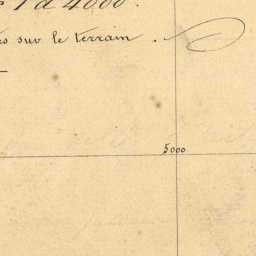 1 à 4000.
sur le terrain.
5000